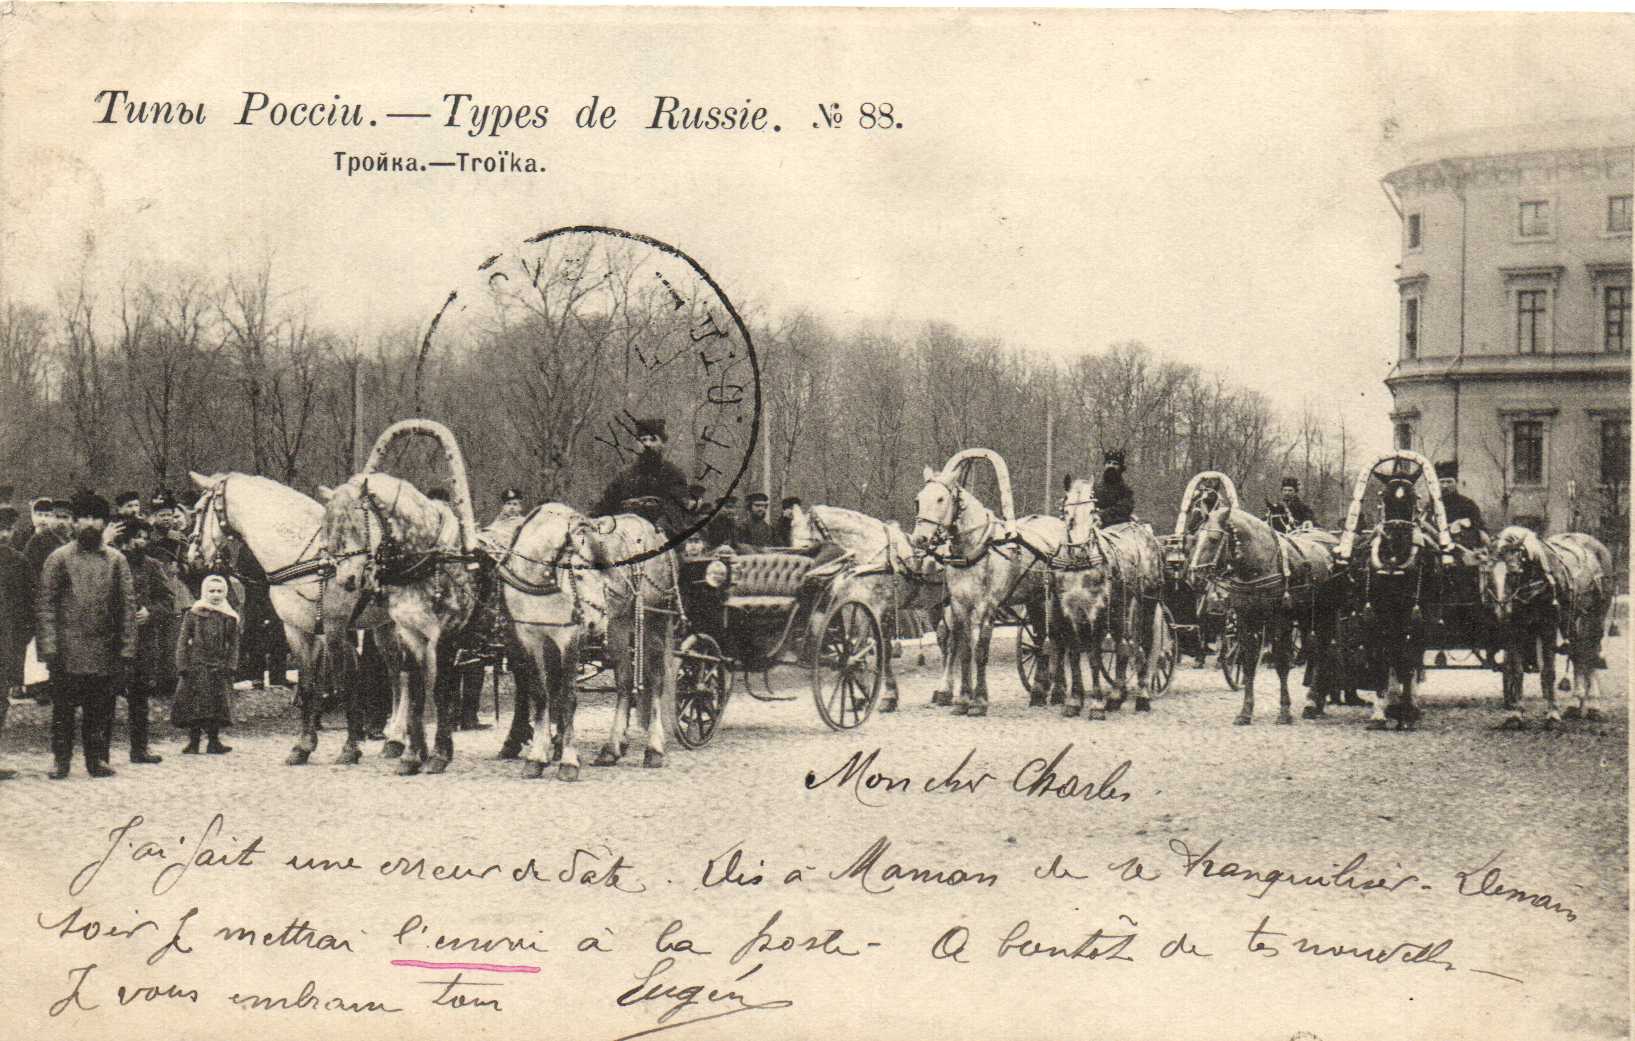 Типы Россіи.—Types de Russie. № 88.
Тройка.—Troïka.
Mon cher Charles.
J'ai fait une erreur de date. Dis à Maman de se tranquiliser - Demain
soir Je mettrai l'envoi à la poste - A bientôt de tes nouvelles -
Je vous embrasse tous Eugén